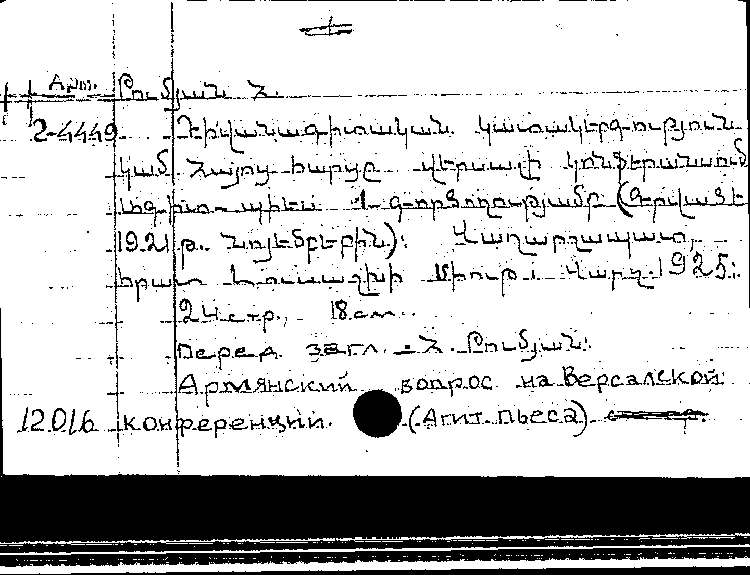 Арм. Րումյան Հ.
2-4449 Դիվանագիտական կատակերգություն
կամ Հայոց հարցը վերսալի կոնֆերանսում
1 գործողությամբ (Գրված է
1921 թ. Նոյեմբերին): Վաղարշապատ,
հրատ. Լուսաշխի Միութ. Վարչ. 1925:
24 стр., 18 см.
Перед загл. - Հ. Րումյան:
Армянский вопрос на Версалской
12016 конференции. (Агит. пьеса)